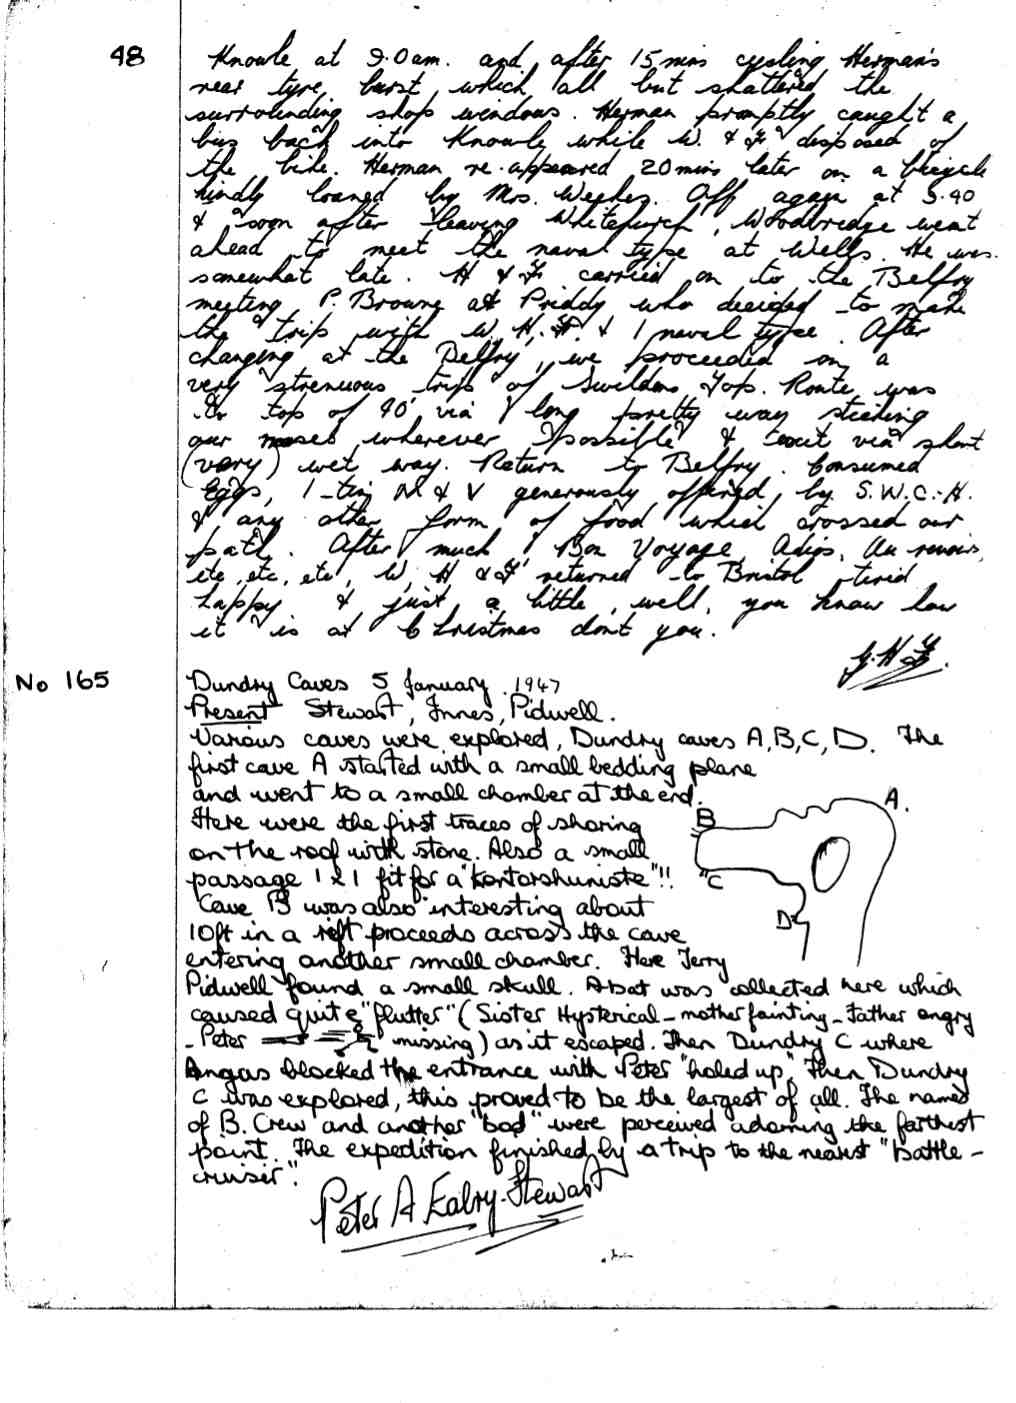 48
Knowle at 9.0am. and after 15 mins cycling Herman's
rear tyre burst, which all but shattered the
surrounding shop windows. Herman promptly caught a
bus back into Knowle while W. & F. disposed of
the bike. Herman re-appeared 20 mins later on a bicycle
kindly loaned by Mrs. Weekes. Off again at 9.40
& soon after leaving Whitchurch, Woodbridge went
ahead to meet the naval type at Wells. He was
somewhat late. H & F carried on to the Belfry
meeting P. Browne at Priddy who decided to make
the trip with W, H, F. & 1 naval type. After
changing at the Belfry, we proceeded on a
very strenuous trip of Swildons Top. Route was
to top of 40' via long pretty way sticking
our noses wherever possible & exit via short
(very) wet way. Return to Belfry. Consumed
Eggs, 1-tin M & V generously offered, by S.W.C.-H.
& any other form of food which crossed our
path. After much Bon Voyage, Adios, Au revoir,
etc, etc, etc, W, H & F returned to Bristol tired
happy & just a little, well, you know how
it is at Christmas dont you.
No 165
Dundry Caves 5 January 1947
Present Stewart, Innes, Pidwell.
Various caves were explored, Dundry caves A, B, C, D. The
first cave A started with a small bedding plane
and went to a small chamber at the end.
Here were the first traces of shoring
on the roof with stone. Also a small
passage 1 x 1 fit for a "Kontorshuniste"!!
Cave B was also interesting about
10ft in a rift proceeds across the cave
entering another small chamber. Here Terry
Pidwell found a small skull. A bat was collected here which
caused quite "flutter" (Sister Hysterical - mother fainting - Father angry
- Peter missing) as it escaped. Then Dundry C where
Angus blocked the entrance with Peter "holed up". Then Dundry
C was explored, this proved to be the largest of all. The names
of B. Crew and another "bod" were perceived adorning the farthest
point. The expedition finished by a trip to the nearest "battle-
cruiser".
A.
B
C
D
Peter A Stewart